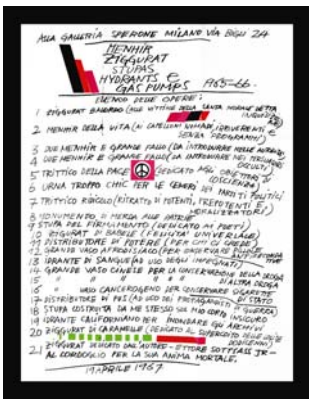 ALLA GALLERIA SPERONE MILANO VIA BIGLI 24
MENHIR
ZIGGURAT
STUPAS
HYDRANTS e
GAS PUMPS 1965-66.
ELENCO DELLE OPERE:
1 ZIGGURAT BALORDO (ALLE VITTIME DELLA SANTA MORALE DETTA
2 MENHIR DELLA VITA (AI CAPELLONI NOMADI, IRRIVERENTI E
SENZA PROGRAMMI)
3 DUE MENHIR E GRANDE FALLO (DA INTRODURRE NELLE
4 DUE MENHIR E GRANDE FALLO (DA INTRODURRE NEI
OCCULTI)
5 TRITTICO DELLA PACE (DEDICATO AGLI OBIETTORI DI
COSCIENZA)
6 URNA TROPPO CHIC PER LE CENERI DEI PARTITI POLITICI
7 TRITTICO RIDICOLO (RITRATTO DI POTENTI, PREPOTENTI E
MORALIZZATORI)
8 MONUMENTO DI MERDA ALLE PATRIE
9 STUPA DEL FIRMAMENTO (DEDICATO AI POETI)
10 ZIGURAT DI BABELE (FELLUTA UNIVERSALE)
11 DISTRIBUTORE DI POTERE (PER CHI CI CREDE)
12 GRANDE VASO AFRODISIACO (PER CONSERVARE
13 IDRANTE DI SANGUE (AD USO DEGLI IMPEGNATI)
14 GRANDE VASO CINESE PER LA CONSERVAZIONE DELLA DROGA
15 " " " " DI ALTRA DROGA
16 " VASO CANCEROGENO PER CONSERVARE SIGARETTE
DI STATO
17 DISTRIBUTORE DI PUS (AD USO DEI PROTAGONISTI DI GUERRA)
18 STUPA COSTRUITA DA ME STESSO SUL MIO CORPO INSICURO
19 IDRANTE CALIFORNIANO PER INONDARE GLI ARCHIVI
20 ZIGGURAT DI CARAMELLE (DEDICATO AL SUPERCONTO DELLE
21 ZIGGURAT DEDICATO DALL'AUTORE - ETTORE SOTTSASS JR -
AL CORDOGLIO PER LA SUA ANIMA MORTALE.
19 APRILE 1967